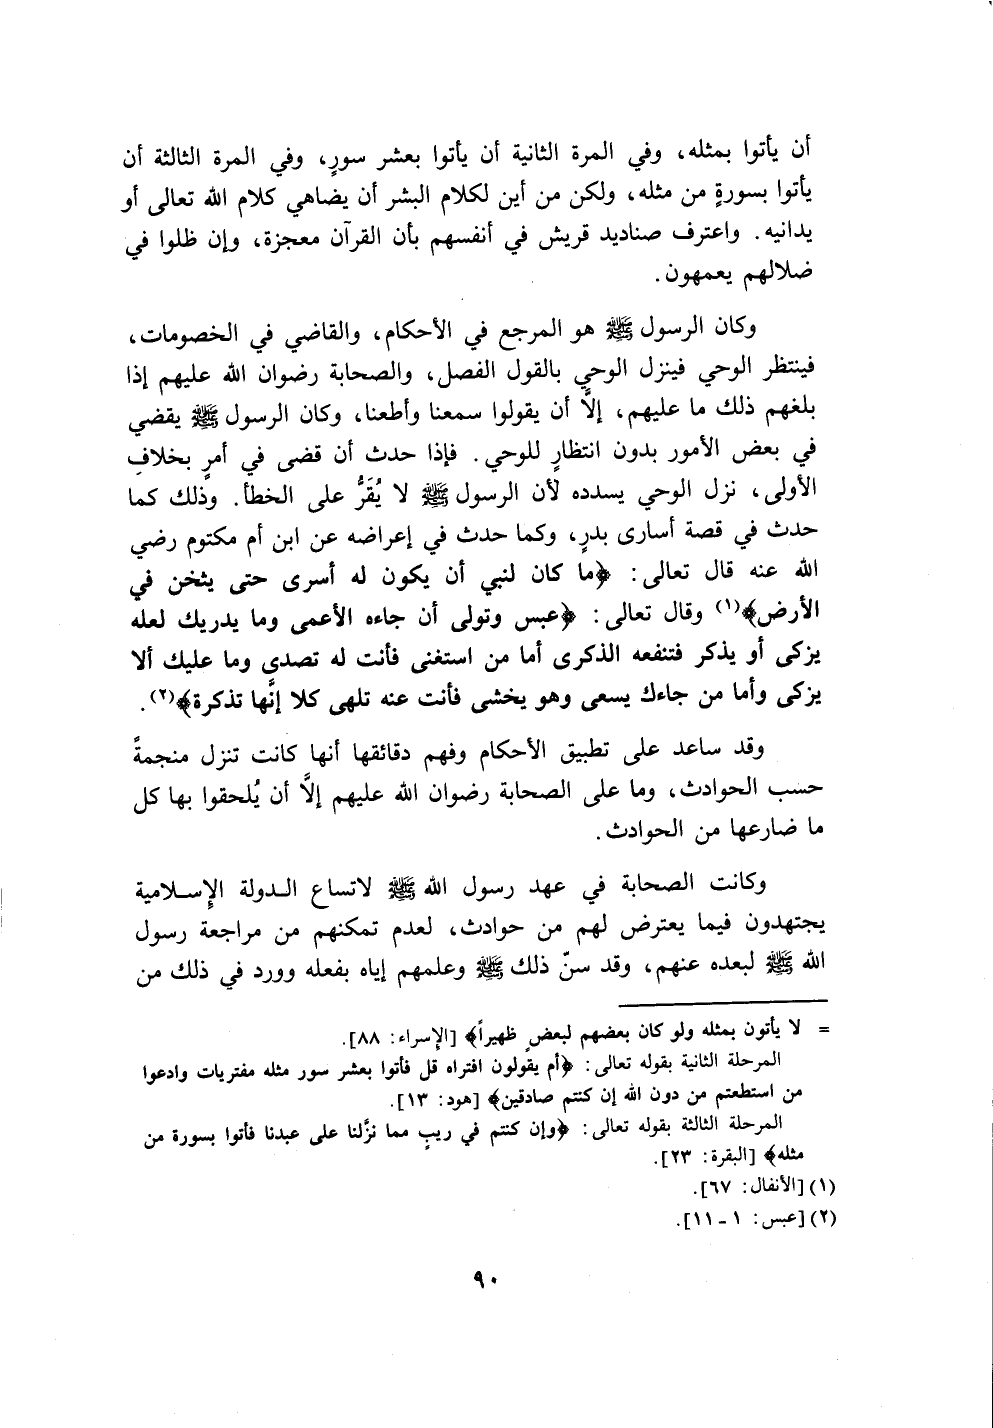 أن يأتوا بمثله، وفي المرة الثانية أن يأتوا بعشر سورٍ، وفي المرة الثالثة أن
يأتوا بسورةٍ من مثله، ولكن من أين لكلام البشر أن يضاهي كلام الله تعالى أو
يدانيه. واعترف صناديد قريش في أنفسهم بأن القرآن معجزة، وإن ظلوا في
ضلالهم يعمهون.
وكان الرسول ﷺ هو المرجع في الأحكام، والقاضي في الخصومات،
فينتظر الوحي فينزل الوحي بالقول الفصل، والصحابة رضوان الله عليهم إذا
بلغهم ذلك ما عليهم، إلاَّ أن يقولوا سمعنا وأطعنا، وكان الرسول ﷺ يقضي
في بعض الأمور بدون انتظارٍ للوحي. فإذا حدث أن قضى في أمرٍ بخلافِ
الأولى، نزل الوحي يسدده لأن الرسول ﷺ لا يُقَرُّ على الخطأ. وذلك كما
حدث في قصة أسارى بدرٍ، وكما حدث في إعراضه عن ابن أم مكتوم رضي
الله عنه قال تعالى: ﴿ما كان لنبي أن يكون له أسرى حتى يثخن في
الأرض﴾(١) وقال تعالى: ﴿عبس وتولى أن جاءه الأعمى وما يدريك لعله
يزكى أو يذكر فتنفعه الذكرى أما من استغنى فأنت له تصدى وما عليك ألا
يزكى وأما من جاءك يسعى وهو يخشى فأنت عنه تلهى كلا إنَّها تذكرة﴾(٢).
وقد ساعد على تطبيق الأحكام وفهم دقائقها أنها كانت تنزل منجمةً
حسب الحوادث، وما على الصحابة رضوان الله عليهم إلاَّ أن يُلحقوا بها كل
ما ضارعها من الحوادث.
وكانت الصحابة في عهد رسول الله ﷺ لاتساع الدولة الإسلامية
يجتهدون فيما يعترض لهم من حوادث، لعدم تمكنهم من مراجعة رسول
الله ﷺ لبعده عنهم، وقد سنّ ذلك ﷺ وعلمهم إياه بفعله وورد في ذلك من
= لا يأتون بمثله ولو كان بعضهم لبعضٍ ظهيراً﴾ [الإسراء: ٨٨].
المرحلة الثانية بقوله تعالى: ﴿أم يقولون افتراه قل فأتوا بعشر سور مثله مفتريات وادعوا
من استطعتم من دون الله إن كنتم صادقين﴾ [هود: ١٣].
المرحلة الثالثة بقوله تعالى: ﴿وإن كنتم في ريبٍ مما نزَّلنا على عبدنا فأتوا بسورة من
مثله﴾ [البقرة: ٢٣].
(١) [الأنفال: ٦٧].
(٢) [عبس: ١ - ١١].
٩٠